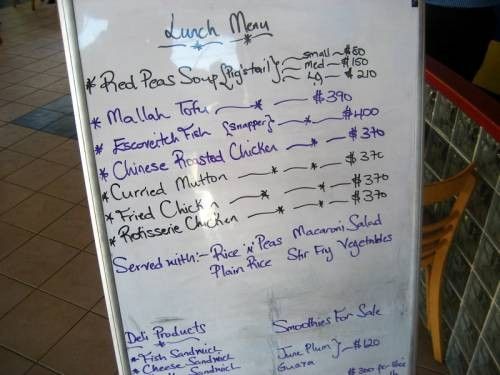 Lunch Menu
* Red Peas Soup {Pig'stail} small $80
med $150
Lg $210
* Mallah Tofu * $390
* Escoveitch Fish {Snapper} * $400
* Chinese Roasted Chicken * $370
* Curried Mutton * * $370
* Fried Chicken * * $370
* Rotisserie Chicken * * $370
Served with:- Rice 'n' Peas Macaroni Salad
Plain Rice Stir Fry Vegetables
Deli Products Smoothies For Sale
* Fish Sandwich June Plum } $120
* Cheese Sandwich Guava
$300 per